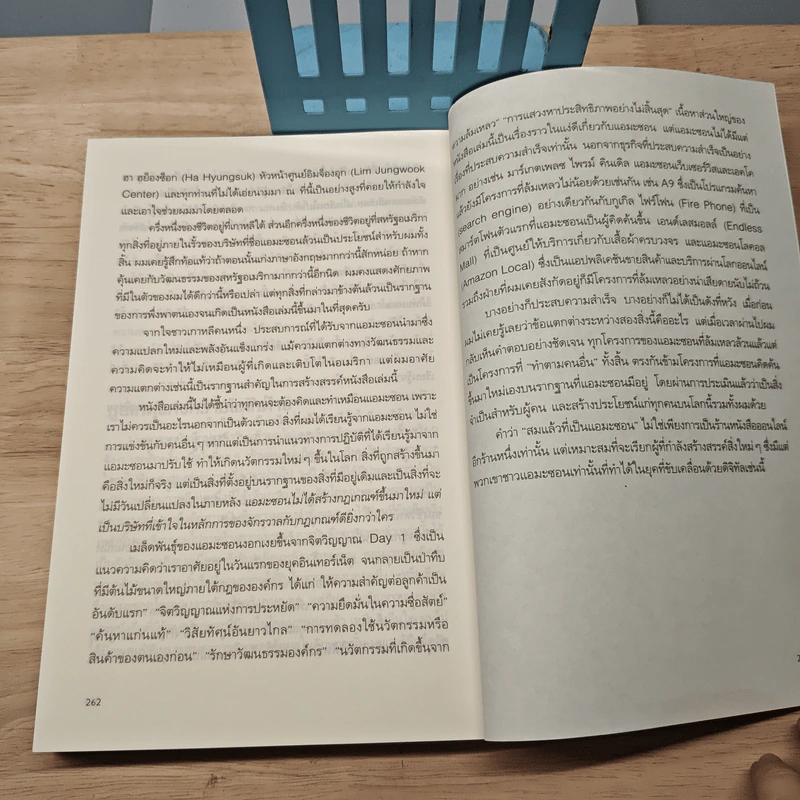 ฮา ฮย็องซ็อก (Ha Hyungsuk) หัวหน้าศูนย์อิมจ็องอุก (Lim Jungwook
Center) และทุกท่านที่ไม่ได้เอ่ยนามมา ณ ที่นี้เป็นอย่างสูงที่คอยให้กำลังใจ
และเอาใจช่วยผมมาโดยตลอด
ครึ่งหนึ่งของชีวิตอยู่ที่เกาหลีใต้ ส่วนอีกครึ่งหนึ่งของชีวิตอยู่ที่สหรัฐอเมริกา
ทุกสิ่งที่อยู่ภายในรั้วของบริษัทที่ชื่อแอมะซอนล้วนเป็นประโยชน์สำหรับผมทั้ง
สิ้น ผมเคยรู้สึกท้อแท้ว่าถ้าตอนนั้นเก่งภาษาอังกฤษมากกว่านี้สักหน่อย ถ้าหาก
คุ้นเคยกับวัฒนธรรมของสหรัฐอเมริกามากกว่านี้อีกนิด ผมคงแสดงศักยภาพ
ที่มีในตัวของผมได้ดีกว่านี้หรือเปล่า แต่ทุกสิ่งที่กล่าวมาข้างต้นล้วนเป็นรากฐาน
ของการพึ่งพาตนเองจนเกิดเป็นหนังสือเล่มนี้ขึ้นมาในที่สุดครับ
จากใจชาวเกาหลีคนหนึ่ง ประสบการณ์ที่ได้รับจากแอมะซอนนำมาซึ่ง
ความแปลกใหม่และพลังอันแข็งแกร่ง แม้ความแตกต่างทางวัฒนธรรมและ
ความคิดจะทำให้ไม่เหมือนผู้ที่เกิดและเติบโตในอเมริกา แต่ผมอาศัย
ความแตกต่างเช่นนี้เป็นรากฐานสำคัญในการสร้างสรรค์หนังสือเล่มนี้
หนังสือเล่มนี้ไม่ได้ชี้นำว่าทุกคนจะต้องคิดและทำเหมือนแอมะซอน เพราะ
เราไม่ควรเป็นอะไรนอกจากเป็นตัวเราเอง สิ่งที่ผมได้เรียนรู้จากแอมะซอน ไม่ใช่
การแข่งขันกับคนอื่นๆ หากแต่เป็นการนำแนวทางการปฏิบัติที่ได้เรียนรู้มาจาก
แอมะซอนมาปรับใช้ ทำให้เกิดนวัตกรรมใหม่ๆ ขึ้นในโลก สิ่งที่ถูกสร้างขึ้นมา
คือสิ่งใหม่ก็จริง แต่เป็นสิ่งที่ตั้งอยู่บนรากฐานของสิ่งที่มีอยู่เดิมและเป็นสิ่งที่จะ
ไม่มีวันเปลี่ยนแปลงในภายหลัง แอมะซอนไม่ได้สร้างกฎเกณฑ์ขึ้นมาใหม่ แต่
เป็นบริษัทที่เข้าใจในหลักการของจักรวาลกับกฎเกณฑ์ดียิ่งกว่าใคร
เมล็ดพันธุ์ของแอมะซอนงอกเงยขึ้นจากจิตวิญญาณ Day 1 ซึ่งเป็น
แนวความคิดว่าเราอาศัยอยู่ในวันแรกของยุคอินเทอร์เน็ต จนกลายเป็นป่าทึบ
ที่มีต้นไม้ขนาดใหญ่ภายใต้กฎขององค์กร ได้แก่ ให้ความสำคัญต่อลูกค้าเป็น
อันดับแรก” “จิตวิญญาณแห่งการประหยัด” “ความยึดมั่นในความซื่อสัตย์”
“ค้นหาแก่นแท้” “วิสัยทัศน์อันยาวไกล” “การทดลองใช้นวัตกรรมหรือ
สินค้าของตนเองก่อน” “รักษาวัฒนธรรมองค์กร” “นวัตกรรมที่เกิดขึ้นจาก
262
ความล้มเหลว” “การแสวงหาประสิทธิภาพอย่างไม่สิ้นสุด” เนื้อหาส่วนใหญ่ของ
หนังสือเล่มนี้เป็นเรื่องราวในแง่ดีเกี่ยวกับแอมะซอน แต่แอมะซอนไม่ได้มีแต่
เรื่องที่ประสบความสำเร็จเท่านั้น นอกจากธุรกิจที่ประสบความสำเร็จเป็นอย่าง
มาก อย่างเช่น มาร์เกตเพลซ ไพรม์ คินเดิล แอมะซอนเว็บเซอร์วิสและเอคโค
แล้วยังมีโครงการที่ล้มเหลวไม่น้อยด้วยเช่นกัน เช่น A9 ซึ่งเป็นโปรแกรมค้นหา
(search engine) อย่างเดียวกันกับกูเกิล ไฟร์โฟน (Fire Phone) ที่เป็น
สมาร์ตโฟนตัวแรกที่แอมะซอนเป็นผู้คิดค้นขึ้น เอนด์เลสมอลล์ (Endless
Mall) ที่เป็นศูนย์ให้บริการเกี่ยวกับเสื้อผ้าครบวงจร และแอมะซอนโลคอล
(Amazon Local) ซึ่งเป็นแอปพลิเคชันขายสินค้าและบริการผ่านโลกออนไลน์
รวมถึงฝ่ายที่ผมเคยสังกัดอยู่ก็มีโครงการที่ล้มเหลวอย่างน่าเสียดายนับไม่ถ้วน
บางอย่างก็ประสบความสำเร็จ บางอย่างก็ไม่ได้เป็นดังที่หวัง เมื่อก่อน
ผมไม่เคยรู้เลยว่าข้อแตกต่างระหว่างสองสิ่งนี้คืออะไร แต่เมื่อเวลาผ่านไปผม
กลับเห็นคำตอบอย่างชัดเจน ทุกโครงการของแอมะซอนที่ล้มเหลวล้วนแล้วแต่
เป็นโครงการที่ “ทำตามคนอื่น” ทั้งสิ้น ตรงกันข้ามโครงการที่แอมะซอนคิดค้น
ขึ้นมาใหม่เองบนรากฐานที่แอมะซอนมีอยู่ โดยผ่านการประเมินแล้วว่าเป็นสิ่ง
จำเป็นสำหรับผู้คน และสร้างประโยชน์แก่ทุกคนบนโลกนี้รวมทั้งผมด้วย
คำว่า “สมแล้วที่เป็นแอมะซอน” ไม่ใช่เพียงการเป็นร้านหนังสือออนไลน์
อีกร้านหนึ่งเท่านั้น แต่เหมาะสมที่จะเรียกผู้ที่กำลังสร้างสรรค์สิ่งใหม่ๆ ซึ่งมีแต่
พวกเขาชาวแอมะซอนเท่านั้นที่ทำได้ในยุคที่ขับเคลื่อนด้วยดิจิทัลเช่นนี้